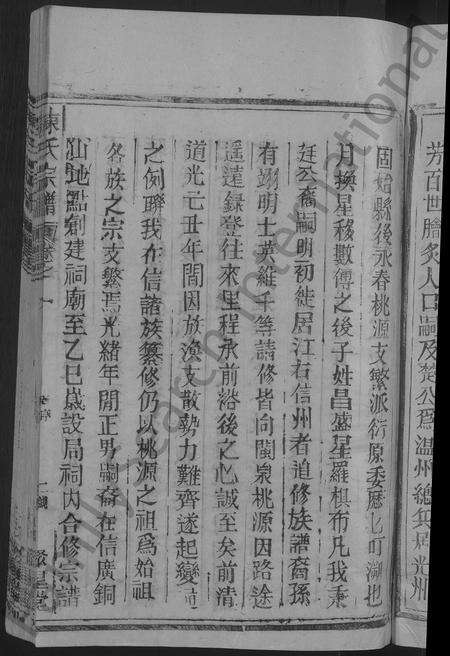 芳百世膾炙人口嗣及楚公爲溫州總兵居光州
固始縣後永春桃源支繁派衍原委歷歷可溯也
月換星移數傳之後子姓昌盛星羅棋布凡我秉
廷公裔嗣明初徙居江右信州者追修族譜裔孫
有翊明士英維千等請修皆向閩泉桃源因路途
遥遠錄登往來里程承前裕後之心誠至矣前清
道光元丑年間因族漁支散勢力難齊遂起變
之例聨我在信諸族纂修仍以桃源之祖爲始祖
各族之宗支繁焉光緒年間正男嗣裔在信廣銅
仙地點創建祠廟至乙巳歲設局祠内合修宗譜
陳氏宗譜 卷之一